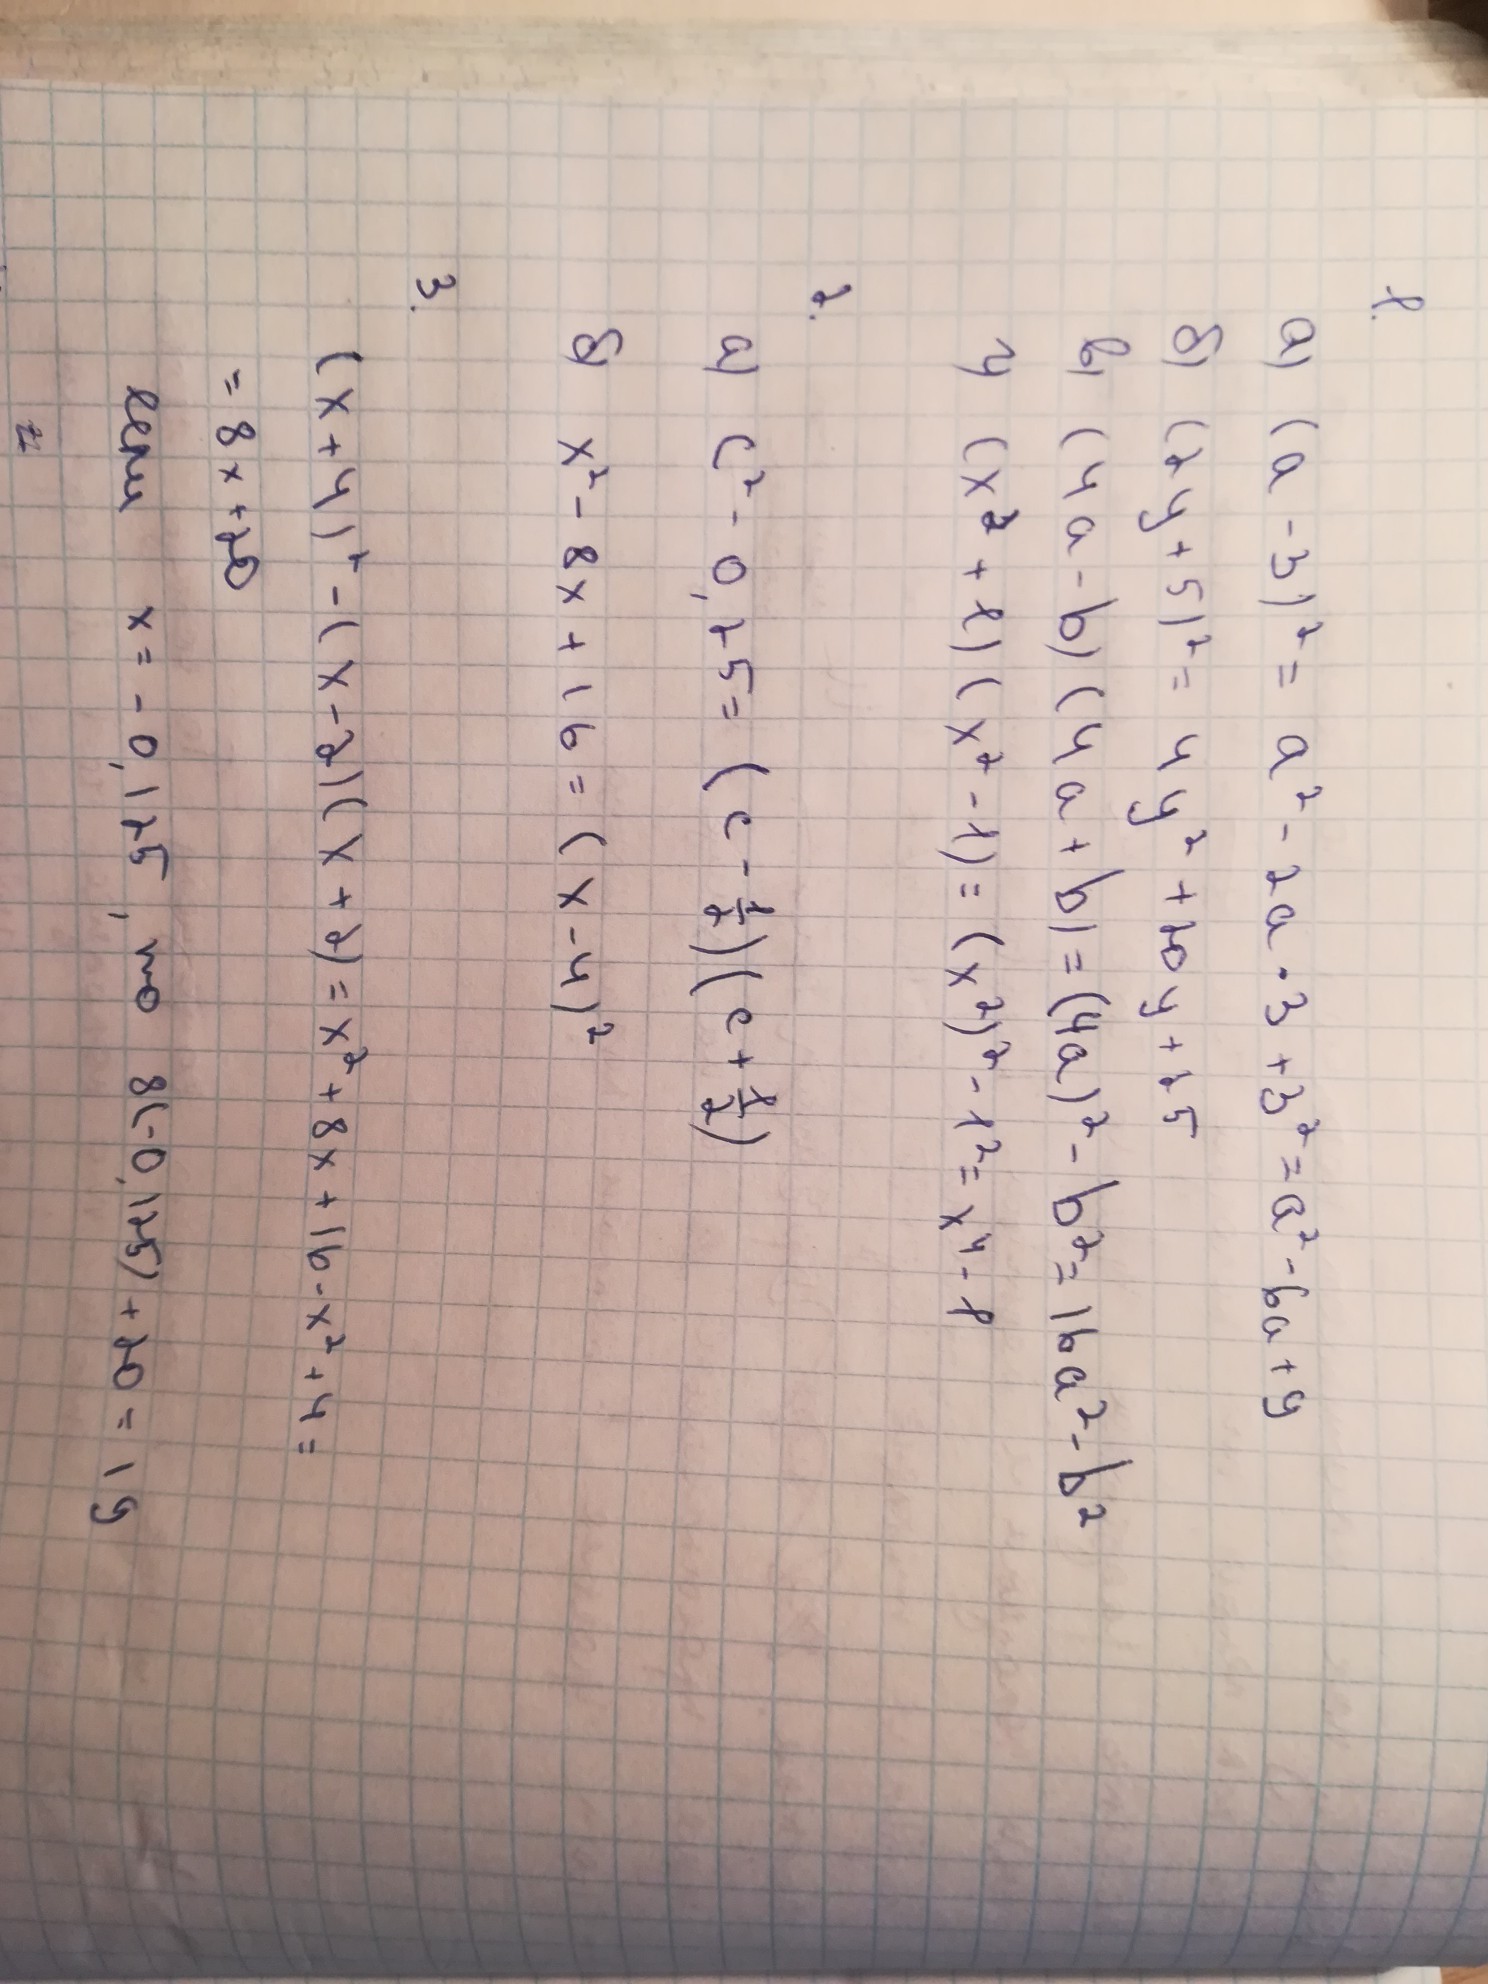 1.
а) (a - 3)² = a² - 2a · 3 + 3² = a² - 6a + 9
б) (2y + 5)² = 4y² + 20y + 25
в) (4a - b) (4a + b) = (4a)² - b² = 16a² - b²
г) (x² + 1) (x² - 1) = (x²)² - 1² = x⁴ - 1
2.
а) c² - 0,25 = (c - 1/2) (c + 1/2)
б) x² - 8x + 16 = (x - 4)²
3.
(x + 4)² - (x - 2)(x + 2) = x² + 8x + 16 - x² + 4 =
= 8x + 20
если x = - 0,125, то 8(-0,125) + 20 = 19